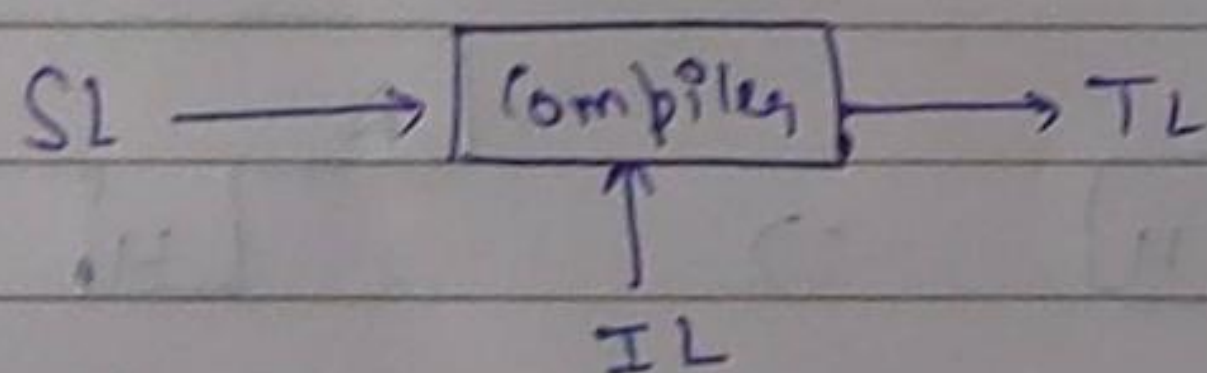 SL → Compiler → TL
↑
IL